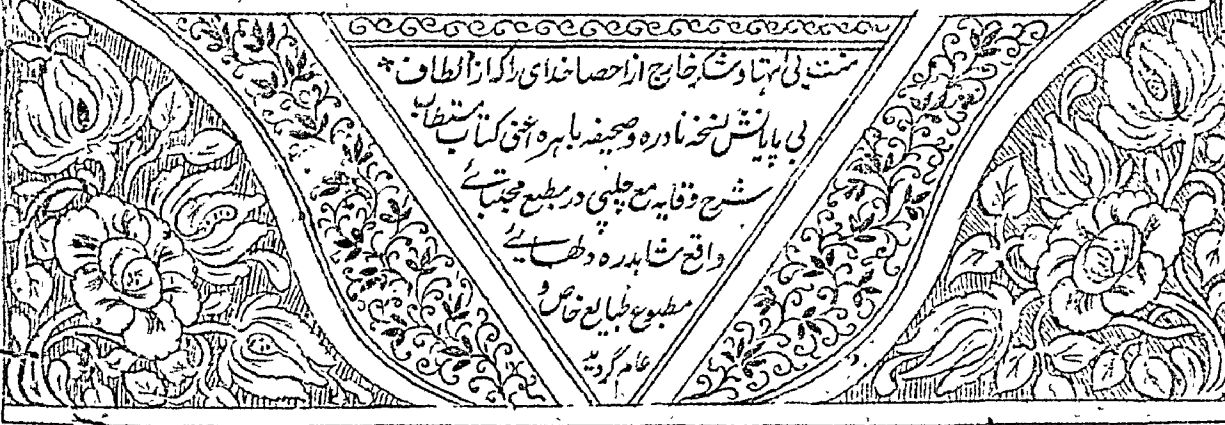 منت بی انتها و شکر خارج از احصا خدای را که از الطاف
بی پایانش نسخه نادره و صحیفه باهره اعنی کتاب مستطاب
شرح وقایه مع چلپی در مطبع مجتبائے
واقع شاہدرہ دھلے
مطبوع طبایع خاص و
عام گردید